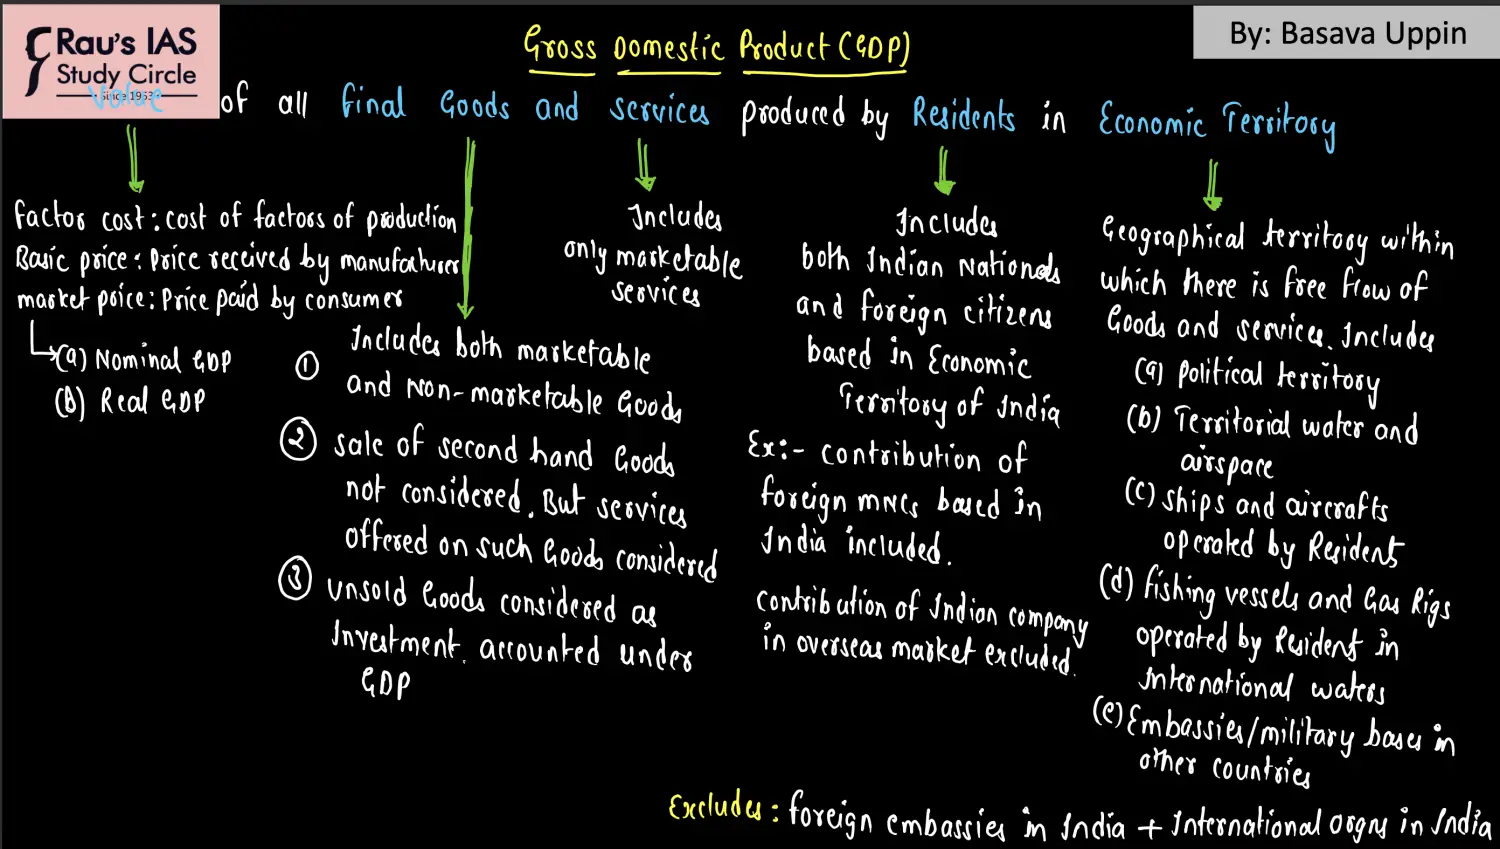 Rau's IAS
Study Circle
Since 1953
By: Basava Uppin
Gross Domestic Product (GDP)
Value of all Final Goods and Services produced by Residents in Economic Territory
Factor cost: cost of factors of production
Basic price: Price received by manufacturer
market price: Price paid by consumer
(a) Nominal GDP
(B) Real GDP
① Includes both marketable
and Non-marketable Goods
② Sale of second hand Goods
not considered. But services
offered on such Goods considered
③ Unsold Goods considered as
Investment. accounted under
GDP
Includes
only marketable
services
Includes
both Indian Nationals
and foreign citizens
based in Economic
Territory of India
Ex:- contribution of
foreign MNCs based in
India included.
contribution of Indian company
in overseas market excluded.
Geographical territory within
which there is free flow of
Goods and services. Includes
(a) Political territory
(b) Territorial water and
airspace
(c) Ships and aircrafts
operated by Resident
(d) Fishing vessels and Gas Rigs
operated by Resident in
International waters
(e) Embassies/military bases in
other countries
Excludes: foreign embassies in India + International orgns in India